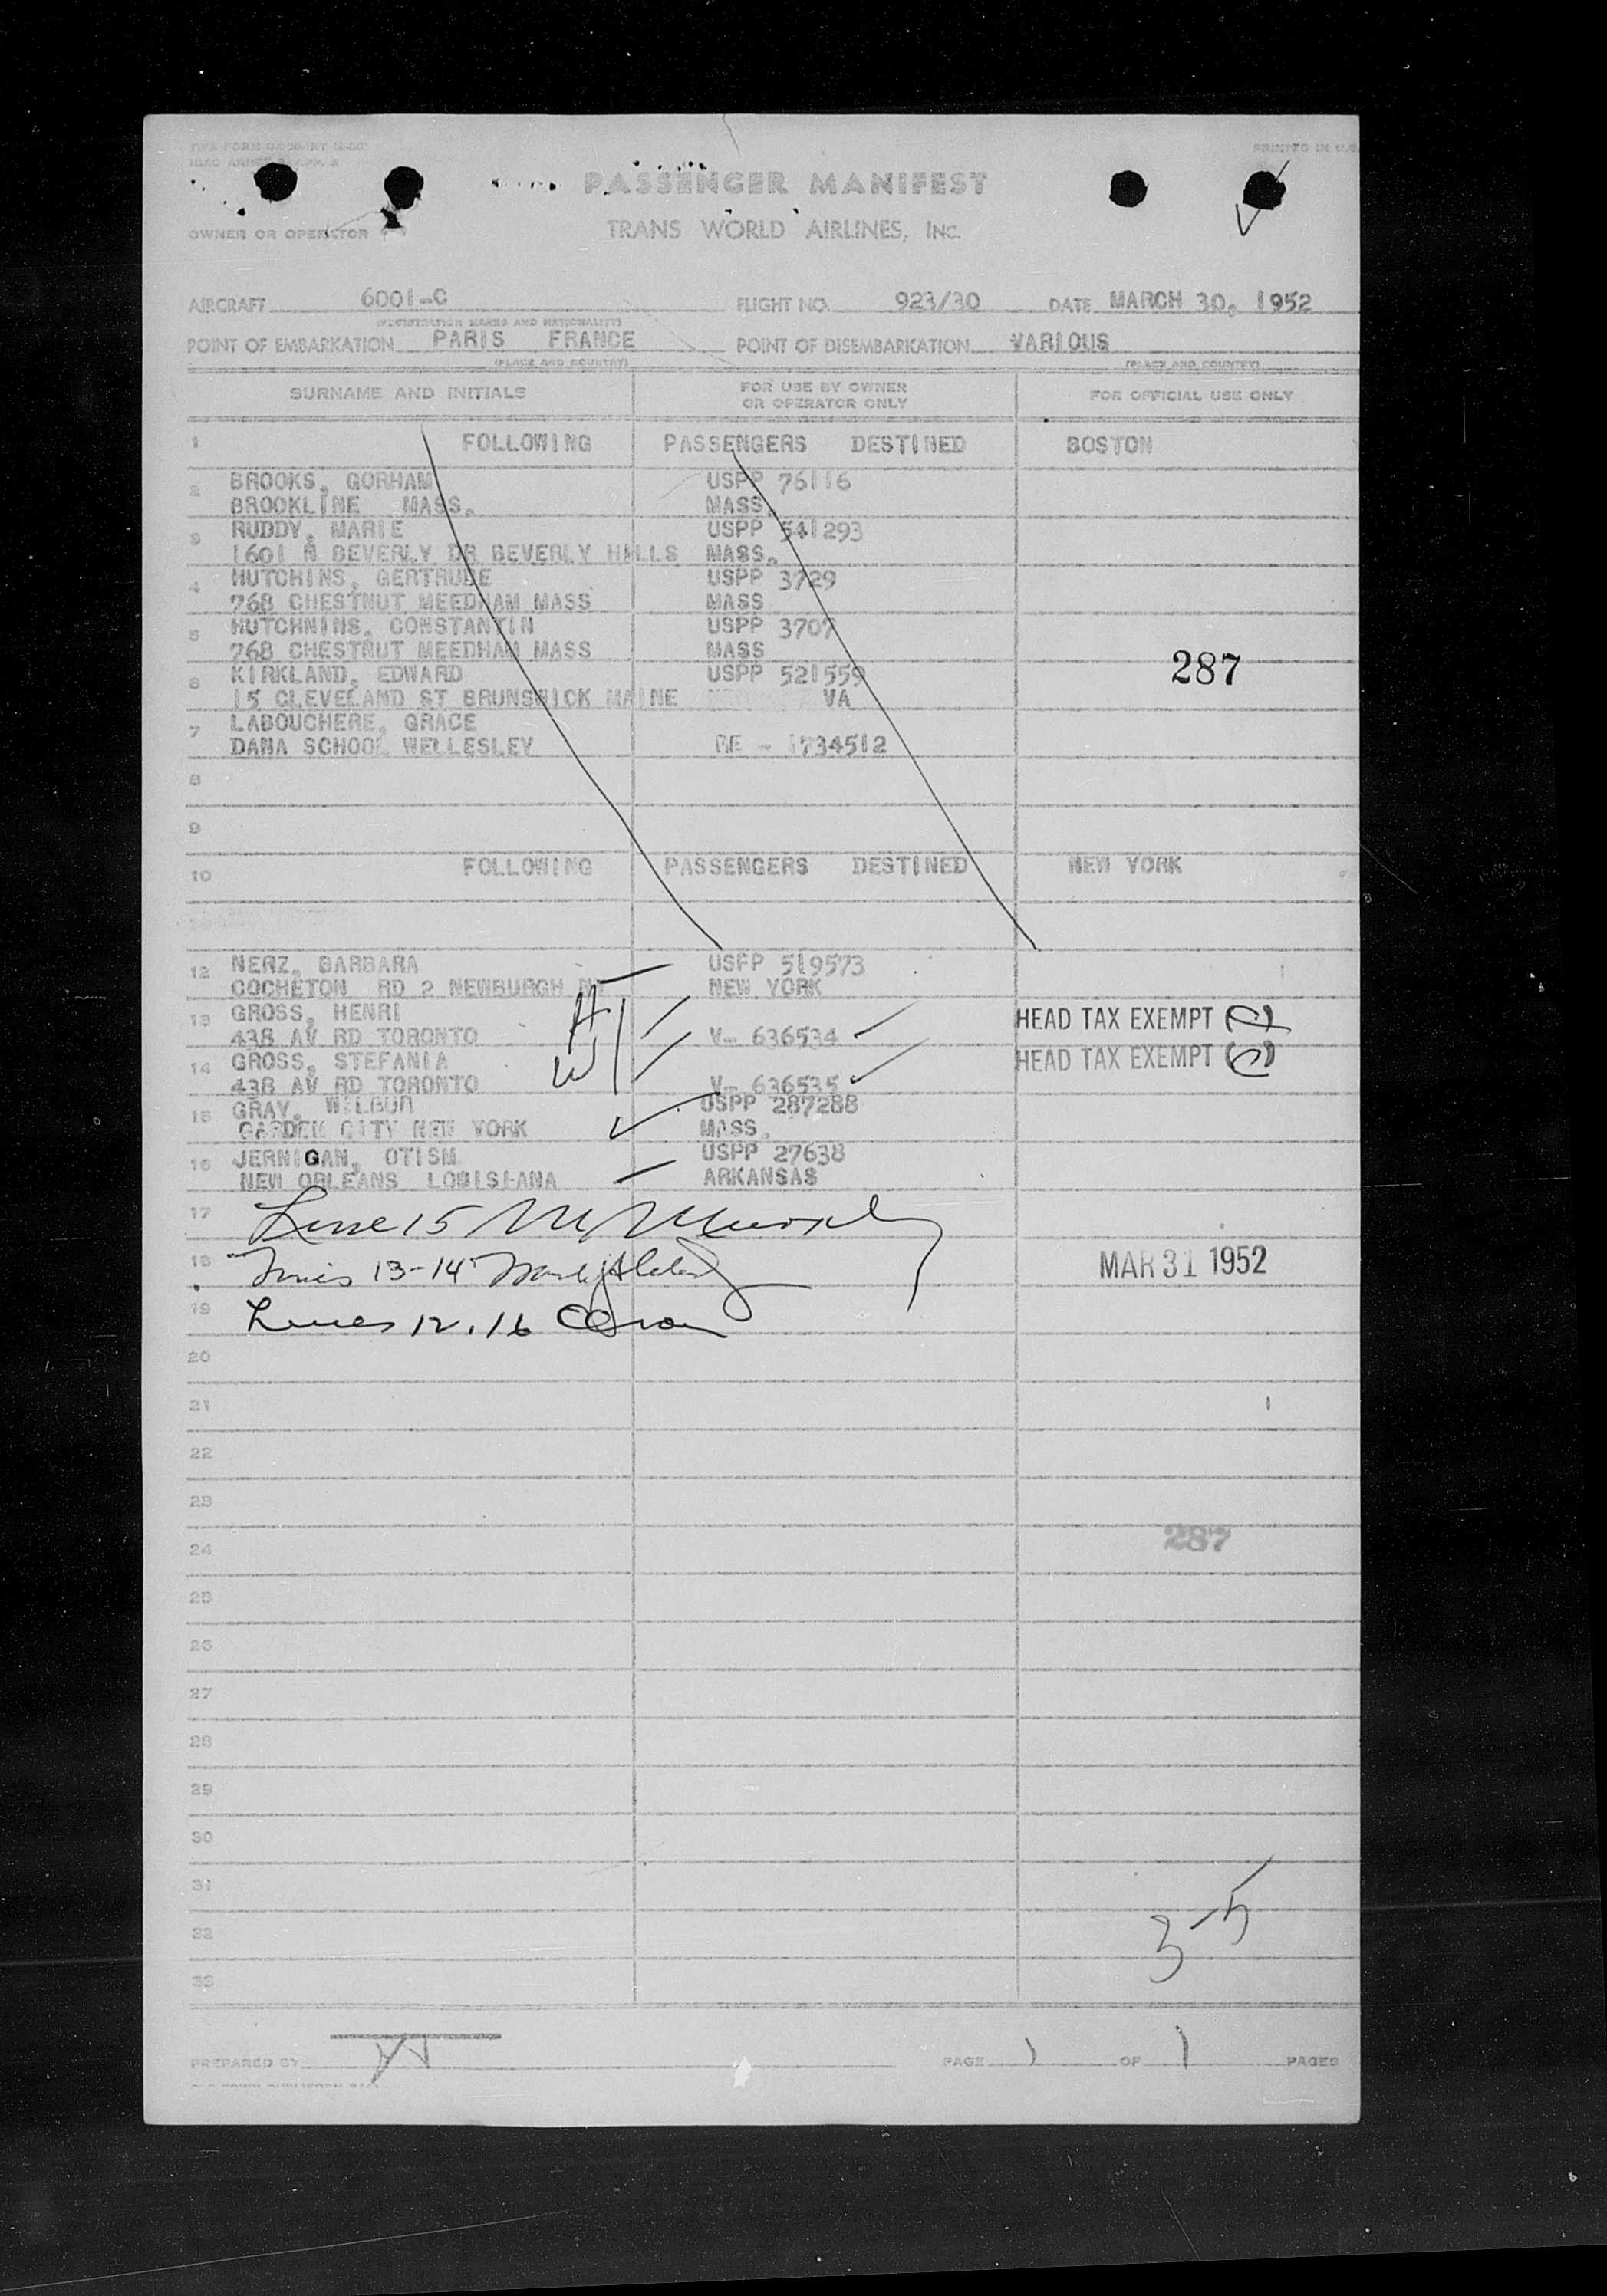 PRINTED IN U.S.
PASSENGER MANIFEST
OWNER OR OPERATOR
TRANS WORLD AIRLINES, INC.
AIRCRAFT 6001-C FLIGHT NO. 923/30 DATE MARCH 30, 1952
(REGISTRATION MARKS AND NATIONALITY)
POINT OF EMBARKATION PARIS FRANCE POINT OF DISEMBARKATION VARIOUS
(PLACE AND COUNTRY) (PLACE AND COUNTRY)
SURNAME AND INITIALS FOR USE BY OWNER OR OPERATOR ONLY FOR OFFICIAL USE ONLY
1 FOLLOWING PASSENGERS DESTINED BOSTON
2 BROOKS, GORHAM USPP 76116
BROOKLINE MASS. MASS.
3 RUDDY, MARIE USPP 541293
1601 N BEVERLY DR BEVERLY HILLS MASS.
4 HUTCHINS, GERTRUDE USPP 3729
768 CHESTNUT MEEDHAM MASS MASS
5 HUTCHNINS, CONSTANTIN USPP 3707
768 CHESTNUT MEEDHAM MASS MASS
287
6 KIRKLAND, EDWARD USPP 521559
15 CLEVELAND ST BRUNSWICK MAINE VA
7 LABOUCHERE, GRACE
DANA SCHOOL WELLESLEY RE - 1734512
8
9
10 FOLLOWING PASSENGERS DESTINED NEW YORK
12 NERZ, BARBARA USPP 519573
COCHETON RD 2 NEWBURGH NY NEW YORK
13 GROSS, HENRI H HEAD TAX EXEMPT
438 AV RD TORONTO V- 636534
14 GROSS, STEFANIA W HEAD TAX EXEMPT
438 AV RD TORONTO V- 636535
15 GRAY, WILBUR USPP 287288
GARDEN CITY NEW YORK MASS.
16 JERNIGAN, OTISM USPP 27638
NEW ORLEANS LOUISIANA ARKANSAS
17 Line 15 M Murphy
18 Lines 13-14 MAR 31 1952
19 Lines 12, 16
20
21
22
23
24 287
25
26
27
28
29
30
31
32 3-5
33
PREPARED BY PAGE 1 OF 1 PAGES